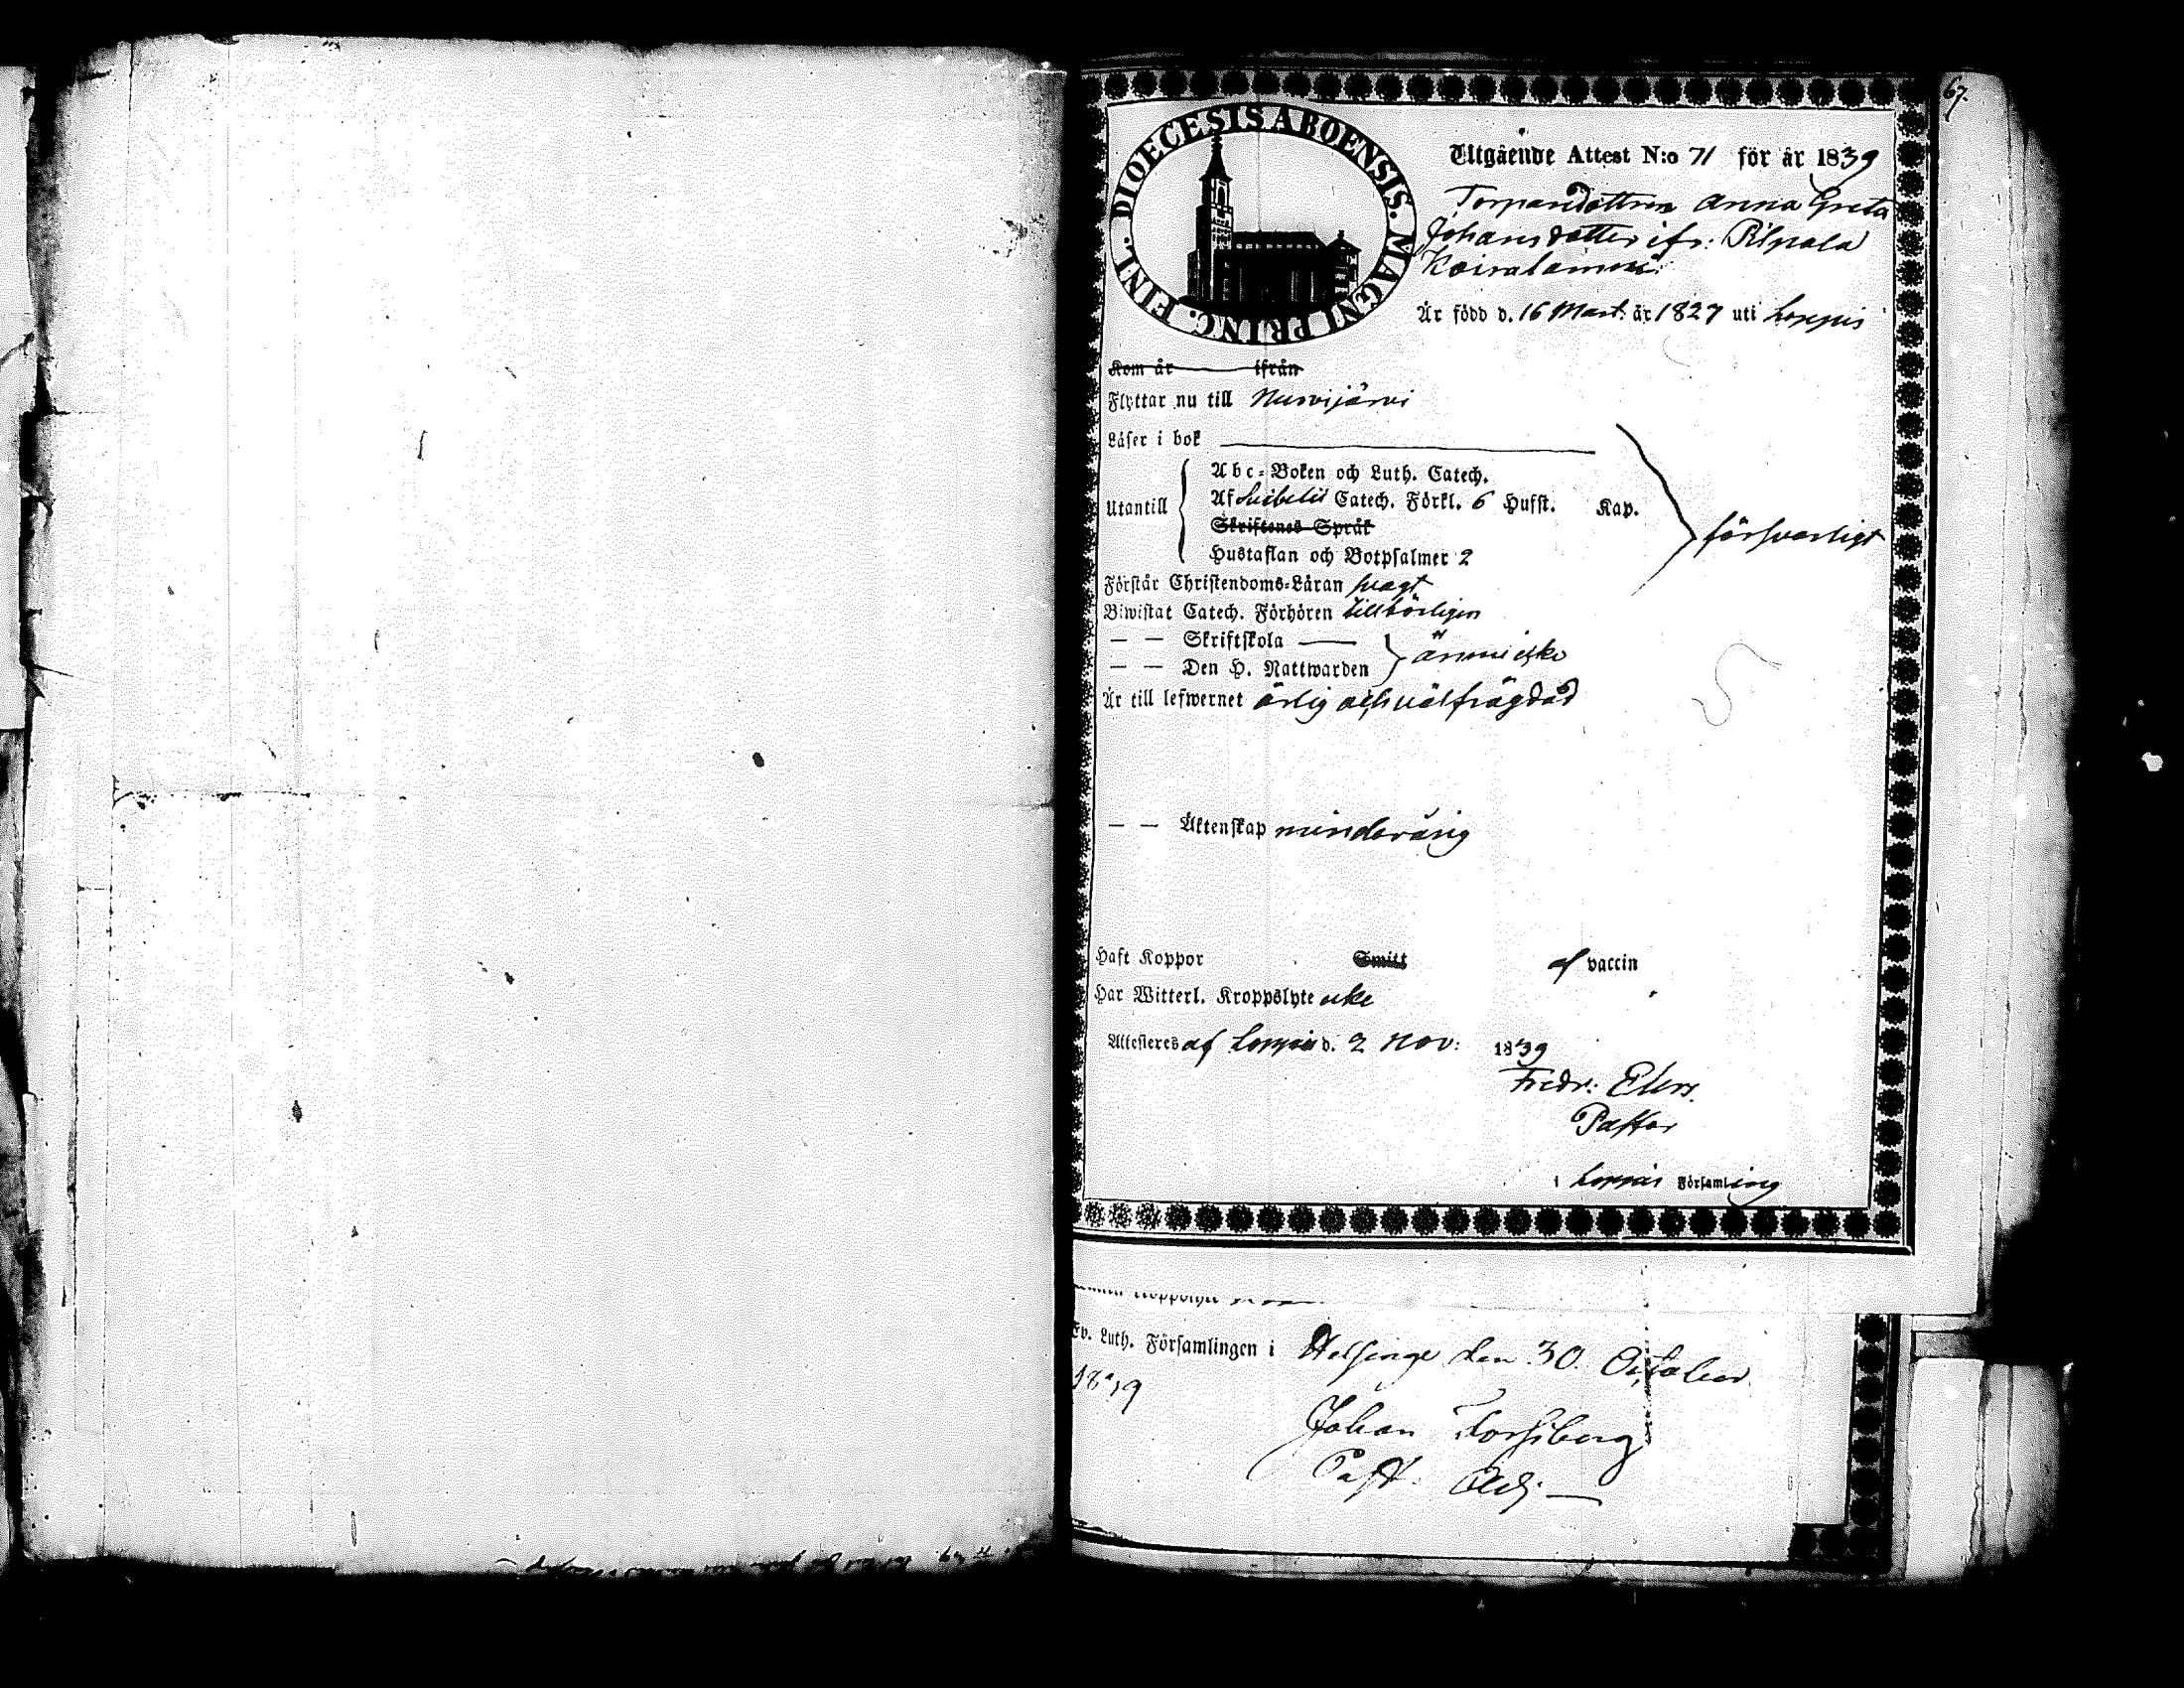 67.
DIOECESIS ABOENSIS. MAGNI PRINC. FINL.
Utgående Attest N:o 71 för år 1839
Torparedottren Anna Greta
Johansdotter ifr: Pilpala
Är född d. 16 Mart: år 1827 uti Loppis
Kom år ifrån
Flyttar nu till Nurmijärvi
Läser i bok
Abc-Boken och Luth. Catech.
Utantill Af Svebelii Catech. Förkl. 6 Hufst. Kap. försvarligt
Skriftenes Språk
Hustaflan och Botpsalmer 2
Förstår Christendoms-Läran svagt
Biwistat Catech. Förhören tillbörligen
— — Skriftskola — ännu icke
— — Den H. Nattwarden
Är till lefwernet ärlig och välfrägdad
— — Äktenskap minderårig
Haft Koppor Smitt af vaccin
Har Witterl. Kroppslyte icke
Attesteres af Loppis d. 2 Nov: 1839
Fredr: Elers.
Pastor
i Loppis Församling
Ev. Luth. Församlingen i Helsinge den 30. October
1839
Johan Forssberg
Past. Adj.